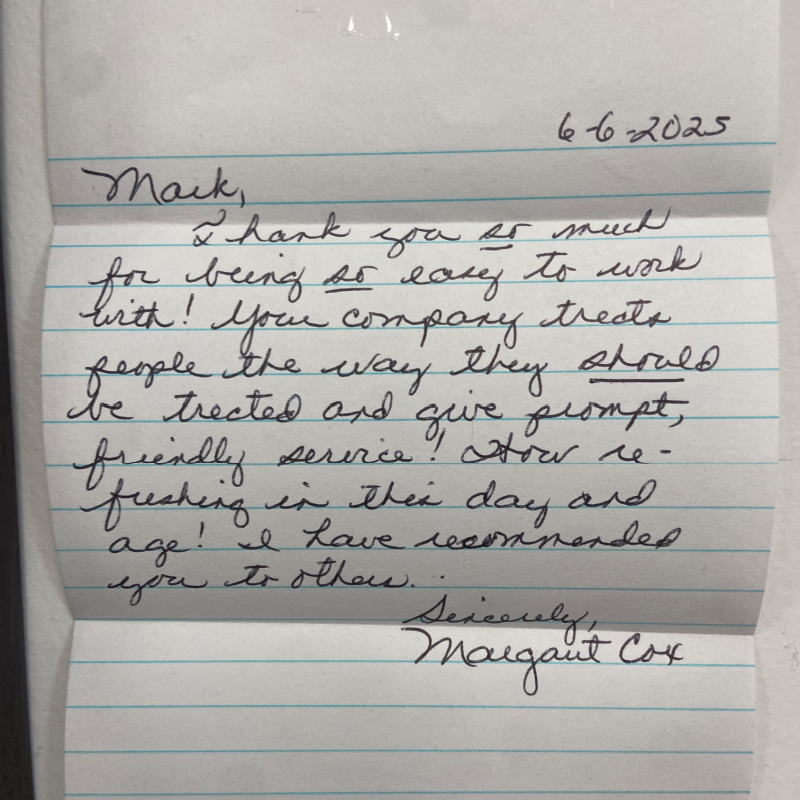 6-6-2025
Mark,
Thank you so much
for being so easy to work
with! Your company treats
people the way they should
be treated and give prompt,
friendly service! How re-
freshing in this day and
age! I have recommended
you to others.
Sincerely,
Margaret Cox